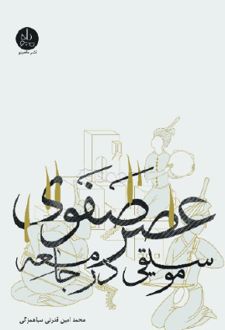 نشر ماهریس
عصر صفوی
موسیقی در جامعه
محمد امین قدرتی سیاهمزگی